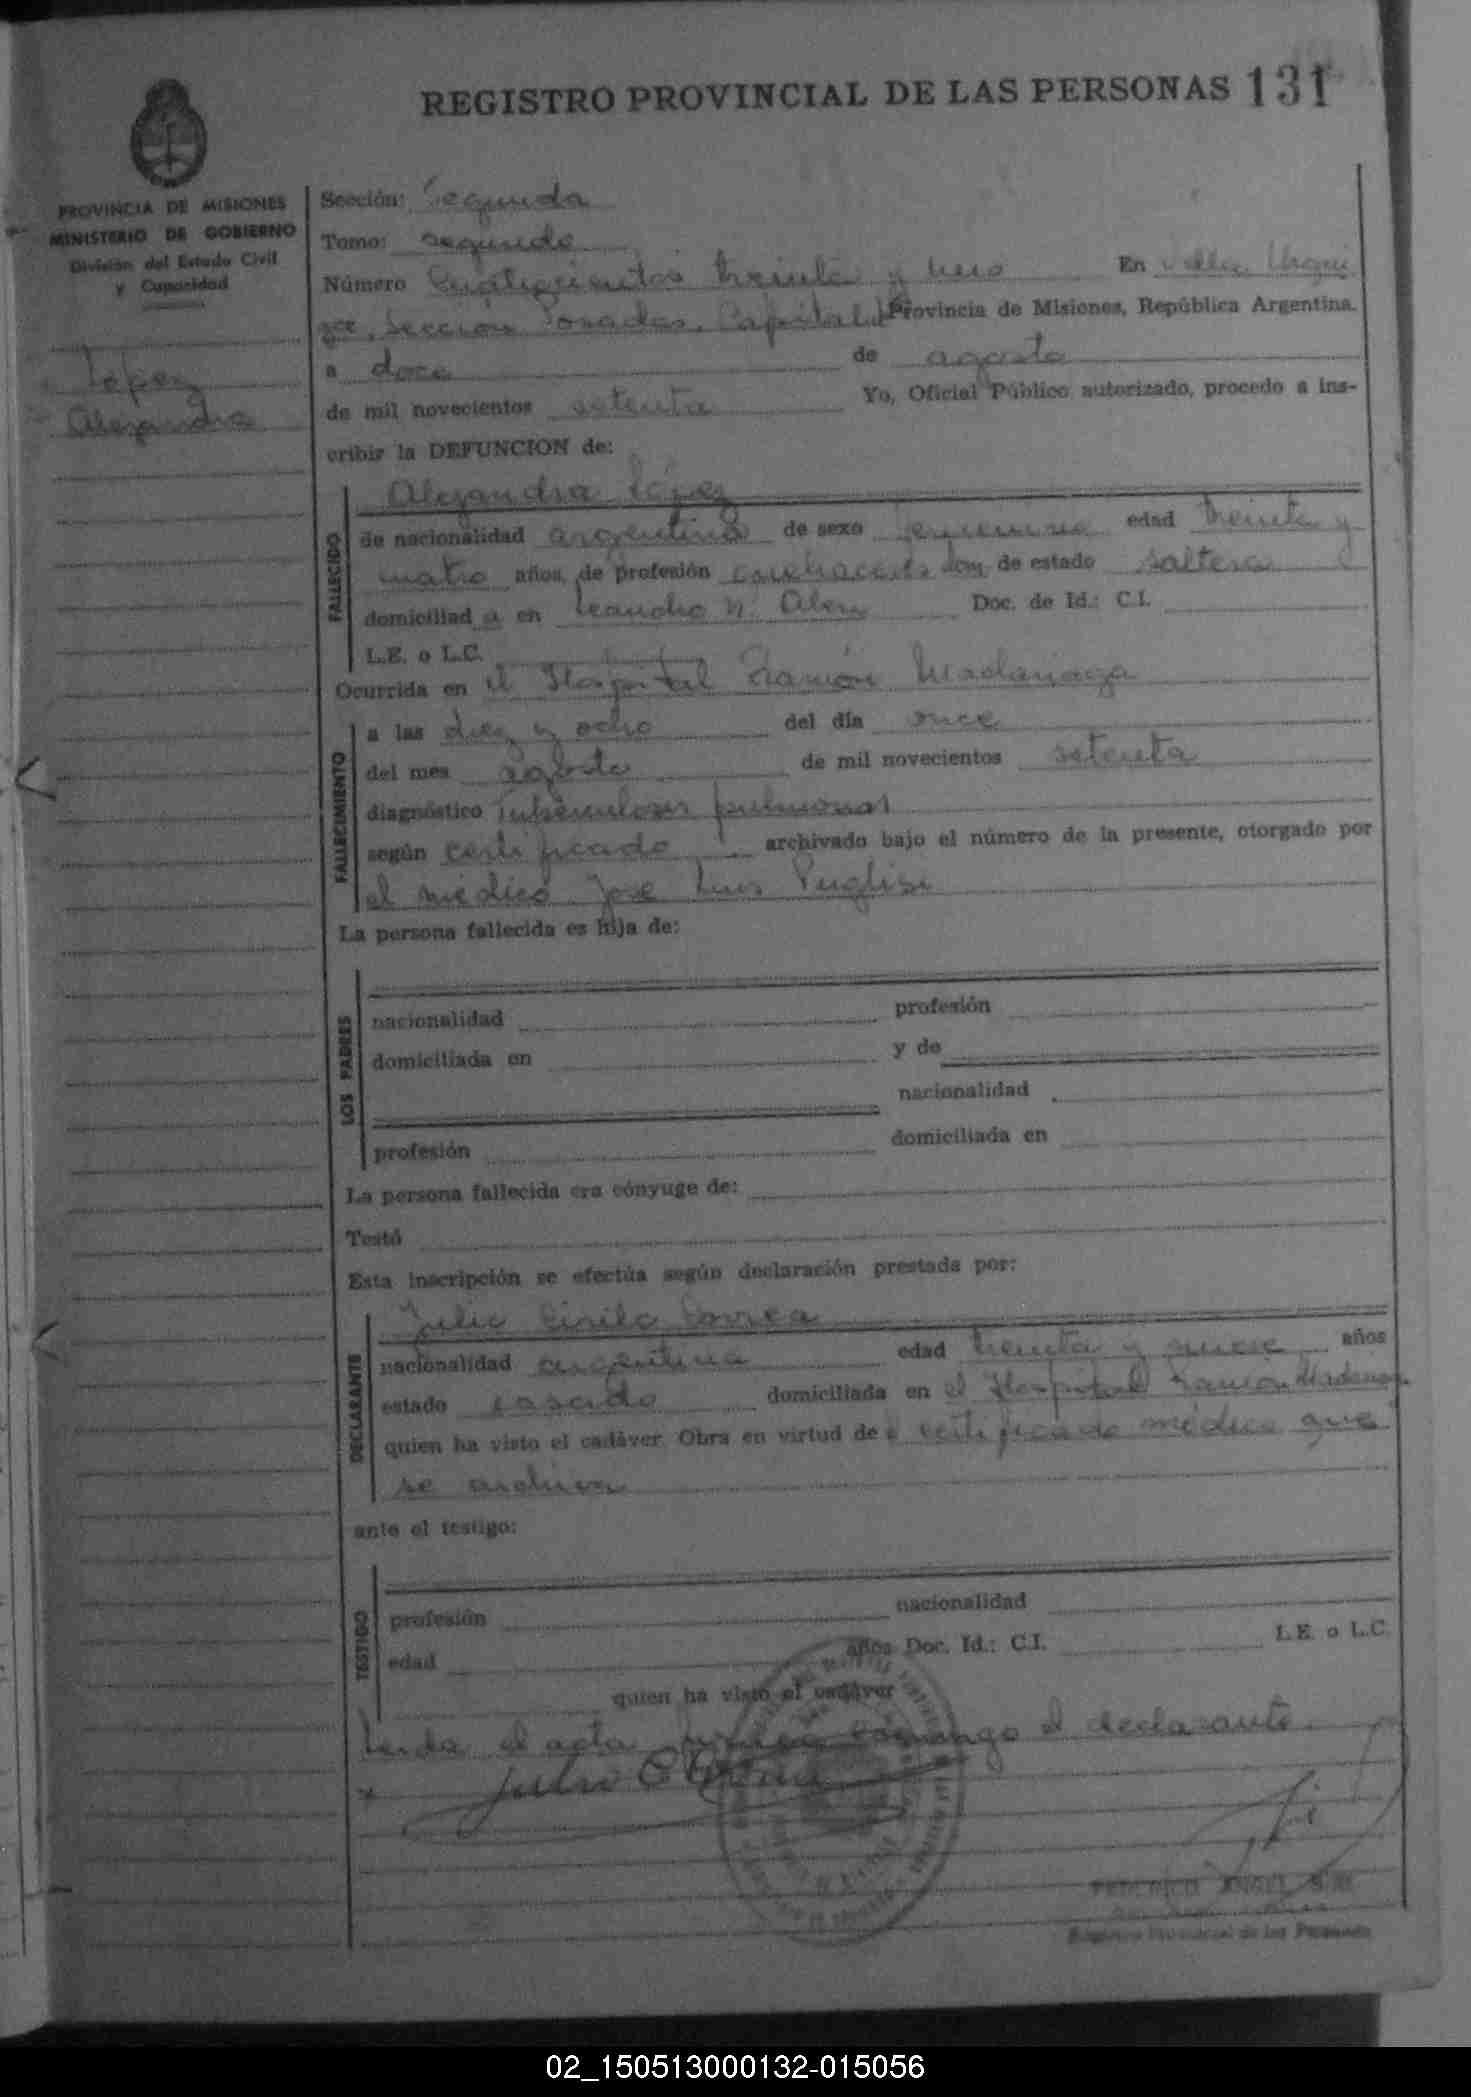 REGISTRO PROVINCIAL DE LAS PERSONAS 131
PROVINCIA DE MISIONES
MINISTERIO DE GOBIERNO
División del Estado Civil
y Capacidad
López
Alejandra
Sección: Segunda
Tomo: segundo
Número Cuatrocientos treinta y uno En Villa Urqui
za, Sección Posadas, Capital, Provincia de Misiones, República Argentina.
a doce de agosto
de mil novecientos setenta Yo, Oficial Público autorizado, procedo a ins-
cribir la DEFUNCION de:
Alejandra López
FALLECIDO
de nacionalidad argentina de sexo femenino edad treinta y
cuatro años, de profesión quehaceres dom de estado soltera
domiciliada en Leandro N. Alem Doc. de Id.: C.I.
L.E. o L.C.
Ocurrida en el Hospital Ramón Madariaga
FALLECIMIENTO
a las diez y ocho del día once
del mes agosto de mil novecientos setenta
diagnóstico Tuberculosis pulmonar
según certificado archivado bajo el número de la presente, otorgado por
el médico José Luis Puglisi
La persona fallecida es hija de:
LOS PADRES
nacionalidad profesión
domiciliada en y de
nacionalidad
profesión domiciliada en
La persona fallecida era cónyuge de:
Testó
Esta inscripción se efectúa según declaración prestada por:
Julio Cirilo Correa
DECLARANTE
nacionalidad argentina edad treinta y nueve años
estado casado domiciliada en el Hospital Ramón Madariaga
quien ha visto el cadáver. Obra en virtud de certificado médico que
se archiva
ante el testigo:
TESTIGO
profesión nacionalidad
edad años Doc. Id.: C.I. L.E. o L.C.
quien ha visto el cadáver
Leida el acta conmigo el declarante.
Julio C Correa
FEDERICO ANGEL
Registro Provincial de las Personas
02_150513000132-015056